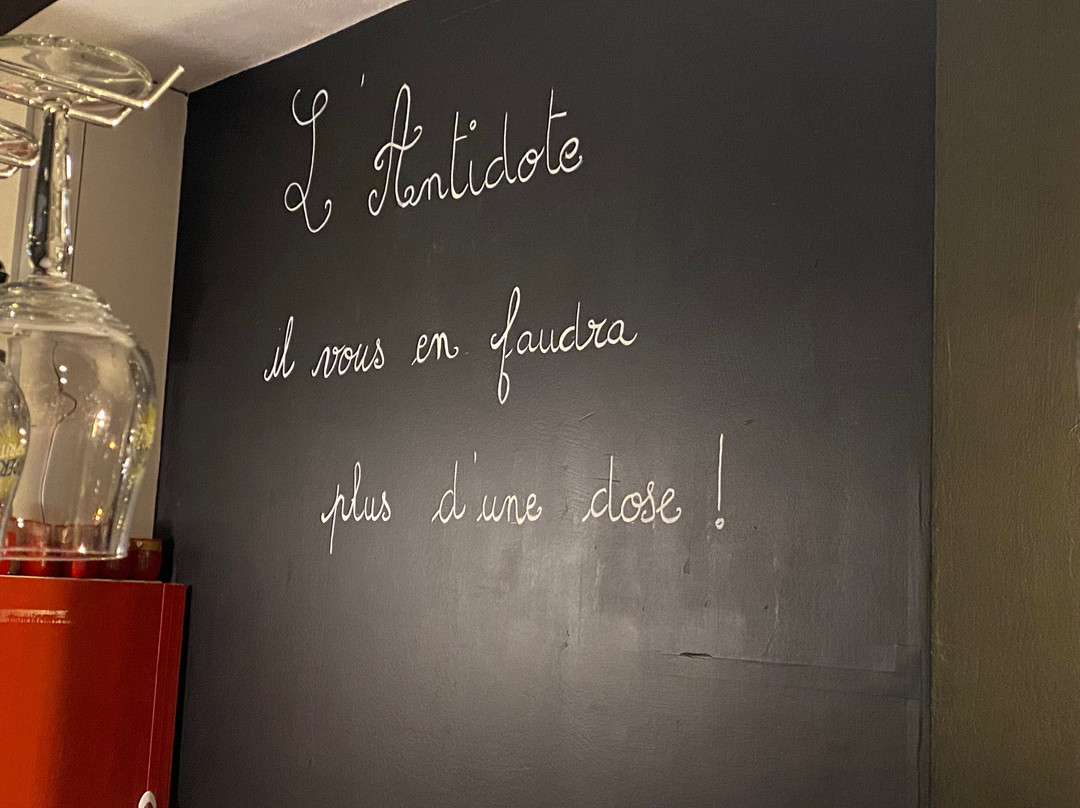 L'Antidote
il vous en faudra
plus d'une dose !